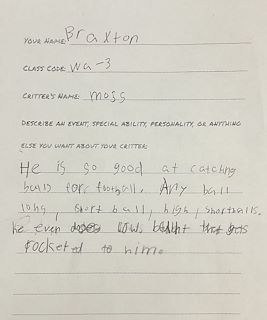 YOUR NAME: Braxton
CLASS CODE: wa-3
CRITTER'S NAME: moss
DESCRIBE AN EVENT, SPECIAL ABILITY, PERSONALITY, OR ANYTHING
ELSE YOU WANT ABOUT YOUR CRITTER:
He is so good at catching
balls for football. Any ball
long, short ball, high, short balls.
he even does that gets
rocketed to him.